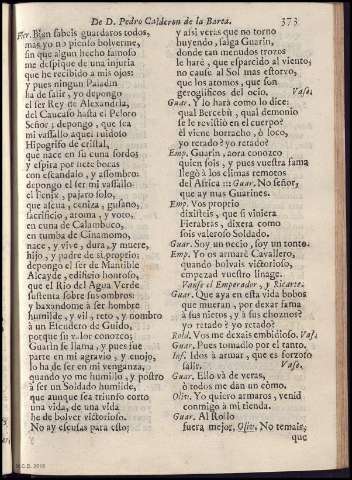 De D. Pedro Calderon de la Barca. 373
Fier. Bien sabeis guardaros todos,
mas yo no pienso bolverme,
sin que algun hecho famoso
me despique de una injuria
que he recibido a mis ojos:
y pues ningun Paladin
ha de salir, yo depongo
el ser Rey de Alexandria,
del Caucaso hasta el Peloro
Señor; depongo, que sea
mi vassallo aquel ruidoto
Hipogrifo de cristal,
que nace en su cuna sordos
y espira por siete bocas
con escandalo, y assombro:
depongo el ser mi vassallo
el Fenix, pajaro solo,
que ascua, ceniza, gusano,
sacrificio, aroma, y voto,
en cuna de Calambuco,
en tumba de Cinamomo,
nace, y vive, dura, y muere,
hijo, y padre de sì proprio;
depongo el ser de Mantible
Alcayde, edificio honroso,
que el Rio del Agua Verde
sustenta sobre sus ombros:
y baxandome à ser hombre
humilde, y vil, reto, y nombro
à un Escudero de Guido,
porque si le conozco;
Guarin se llama, y pues fue
parte en mi agravio, y enojo,
lo ha de ser en mi venganza,
quando yo me humillo, y postro
à ser un Soldado humilde,
que aunque sea triunfo corto
una vida, de una vida
he de bolver victorioso.
No ay escusas para esto;
y assi veras que no torno
huyendo, salga Guarin,
donde tan menudos trozos
le harè, que esparcido al viento,
no cause al Sol mas estorvo,
que los atomos, que son
geroglificos del ocio. Vase.
Guar. Y lo harà como lo dice:
qual Bercebù, qual demonio
se le revistiò en el cuerpo?
èl viene borracho, ò loco,
yo retado? yo retado?
Emp. Guarin, aora conozco
quien sois, y pues vuestra fama
llegò à los climas remotos
del Africa ::: Guar. No señor,
que ay mas Guarines.
Emp. Vos proprio
dixisteis, que si viniera
Fierabras, dixera como
sois valeroso Soldado.
Guar. Soy un necio, soy un tonto.
Emp. Yo os armarè Cavallero,
quando bolvais victorioso,
empezad vuestro linage.
Vanse el Emperador, y Ricarte.
Guar. Que aya en esta vida bobos
que mueran, por dexar fama
à sus nietos, y à sus choznos?
yo retado? yo retado?
Rold. Vos me dexais embidioso. Vase
Guar. Pues tomadlo por el tanto.
Inf. Idos à armar, que es forzoso
salir. Vase.
Guar. Ello và de veras,
ò todos me dan un còmo.
Oliv. Yo quiero armaros, venid
conmigo à mi tienda.
Guar. Al Rollo
fuera mejor. Oliv. No temais;
que